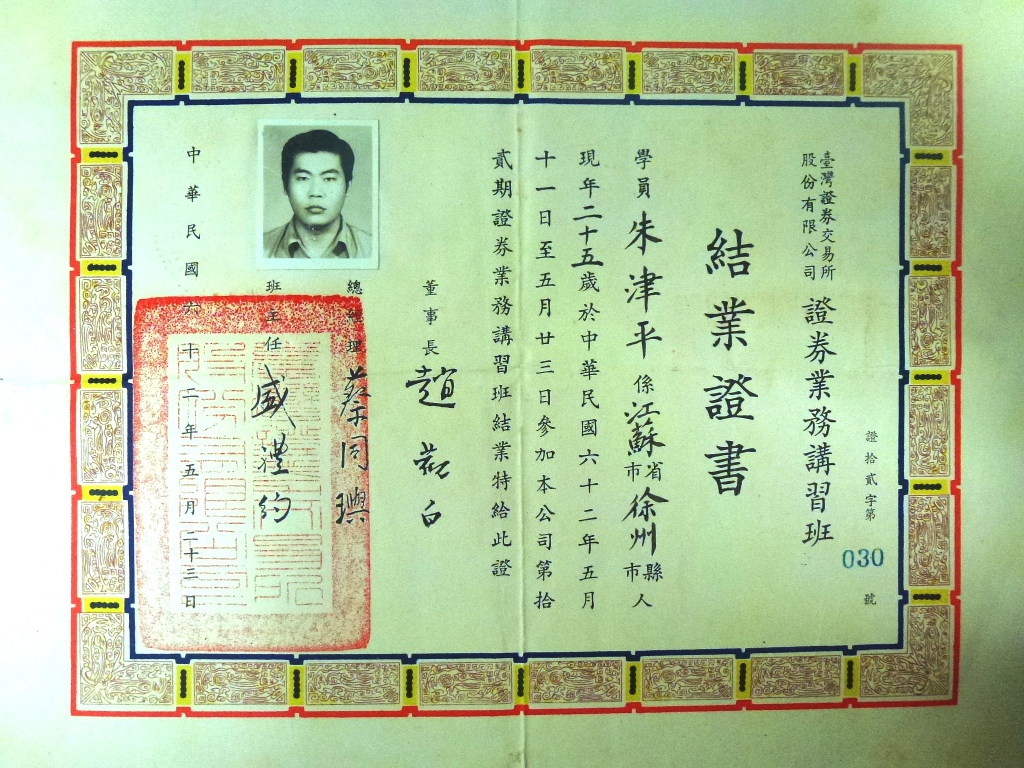 臺灣證券交易所
股份有限公司
證券業務講習班
結業證書
證拾貳字第 030 號
學員朱津平係江蘇省市徐州縣市人
現年二十五歲於中華民國六十二年五月
十一日至五月廿三日參加本公司第拾
貳期證券業務講習班結業特給此證
董事長 趙葆全
總經理 蔡同璵
班主任 盛禮約
中華民國六十二年五月二十三日